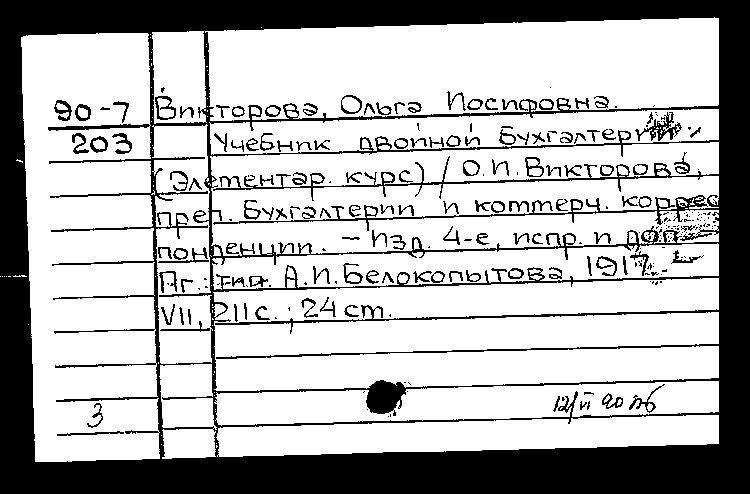 90-7 Викторова, Ольга Иосифовна.
203 Учебник двойной бухгалтерии :
(Элементар. курс) / О.И. Викторова,
преп. бухгалтерии и коммерч. коррес
понденции. - Изд. 4-е, испр. и доп. -
Пг.: тип. А.И. Белокопытова, 1917. -
VII, 211 с. ; 24 см.
3 12/VI 90